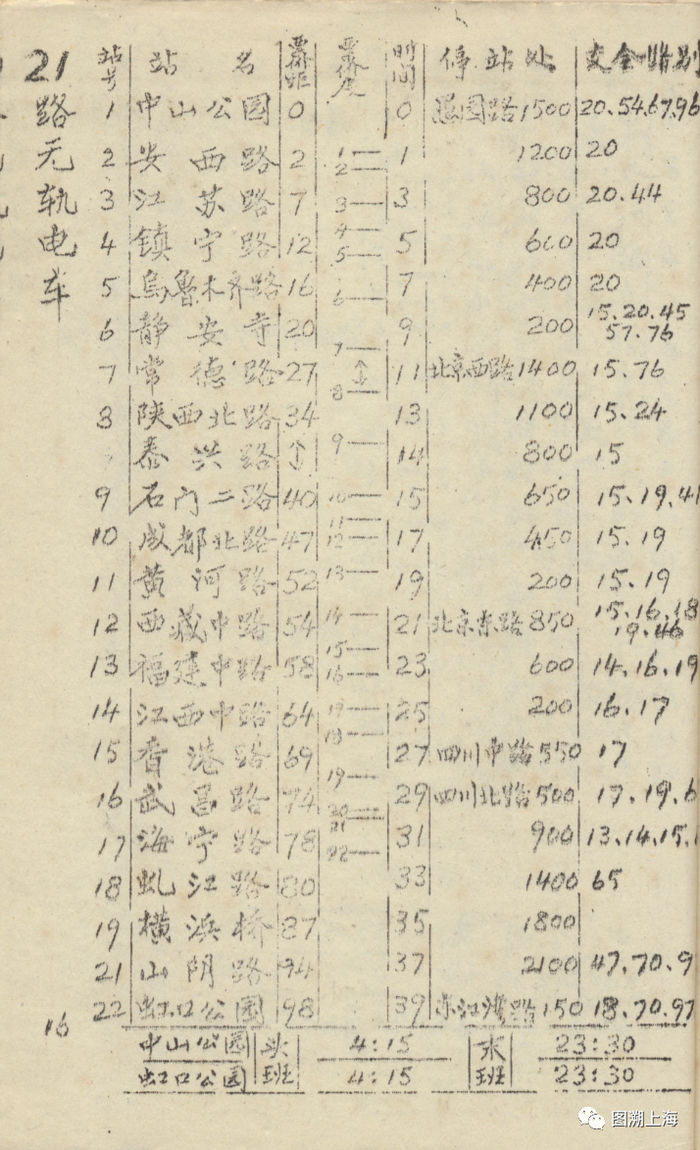 21路无轨电车
站号 站名 票价距 时间 停站处 交会路别
1 中山公园 0 0 愚园路 1500 20.54.67.96
2 安西路 2 1 1200 20
3 江苏路 7 3 800 20.44
4 镇宁路 12 5 600 20
5 乌鲁木齐路 16 7 400 20
6 静安寺 20 9 200 15.20.45 57.76
7 常德路 27 11 北京西路 1400 15.76
8 陕西北路 34 13 1100 15.24
泰兴路 14 800 15
9 石门二路 40 15 650 15.19.41
10 成都北路 47 17 450 15.19
11 黄河路 52 19 200 15.19
12 西藏中路 54 21 北京东路 850 15.16.18 19.46
13 福建中路 58 23 600 14.16.19
14 江西中路 64 25 200 16.17
15 香港路 69 27 四川中路 550 17
16 武昌路 74 29 四川北路 500 17.19.6
17 海宁路 78 31 900 13.14.15.
18 虬江路 80 33 1400 65
19 横浜桥 87 35 1800
21 山阴路 94 37 2100 47.70.9
22 虹口公园 98 39 东江湾路 150 18.70.97
中山公园 头班 4:15 末班 23:30
虹口公园 4:15 23:30
16
图溯上海